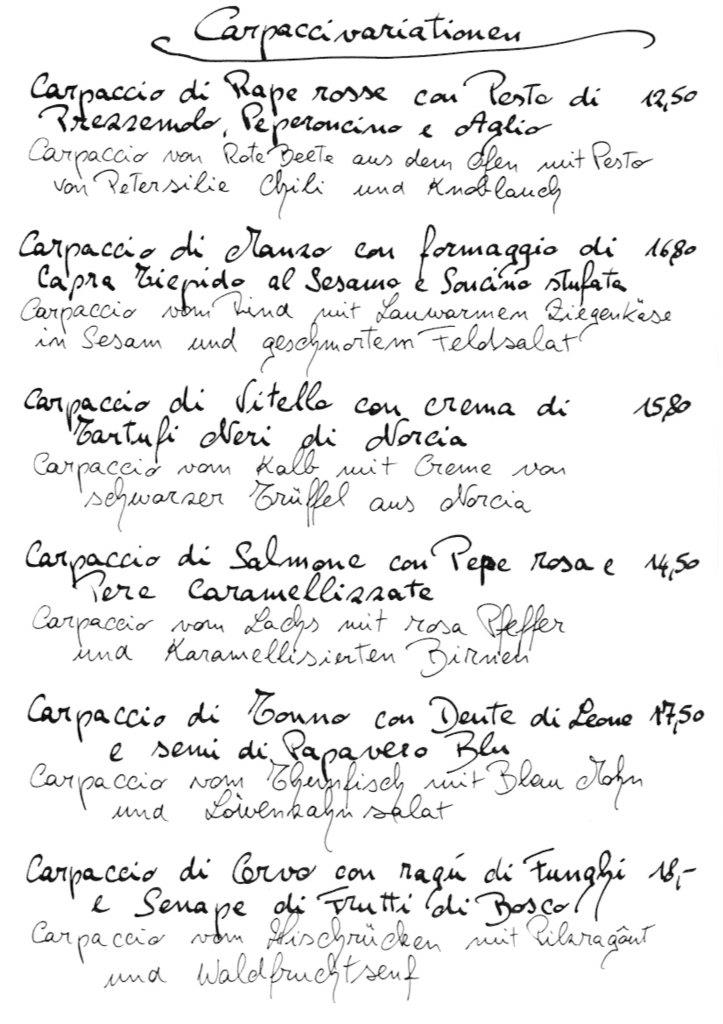 Carpaccivariationen
Carpaccio di Rape rosse con Pesto di 12,50
Prezzemolo, Peperoncino e Aglio
Carpaccio von Rote Beete aus dem Ofen mit Pesto
von Petersilie Chili und Knoblauch
Carpaccio di Manzo con formaggio di 16,80
Capra Tiepido al Sesamo e Soncino stufata
Carpaccio vom Rind mit Lauwarmen Ziegenkäse
in Sesam und geschmortem Feldsalat
Carpaccio di Vitello con crema di 15,80
Tartufi Neri di Norcia
Carpaccio vom Kalb mit Creme von
schwarzer Trüffel aus Norcia
Carpaccio di Salmone con Pepe rosa e 14,50
Pere Caramellizzate
Carpaccio vom Lachs mit rosa Pfeffer
und Karamellisierten Birnen
Carpaccio di Tonno con Dente di Leone 17,50
e semi di Papavero Blu
Carpaccio vom Thunfisch mit Blau Mohn
und Löwenzahnsalat
Carpaccio di Cervo con ragú di Funghi 18,-
e Senape di Frutti di Bosco
Carpaccio vom Hischrücken mit Pilzragôut
und Waldfruchtsenf